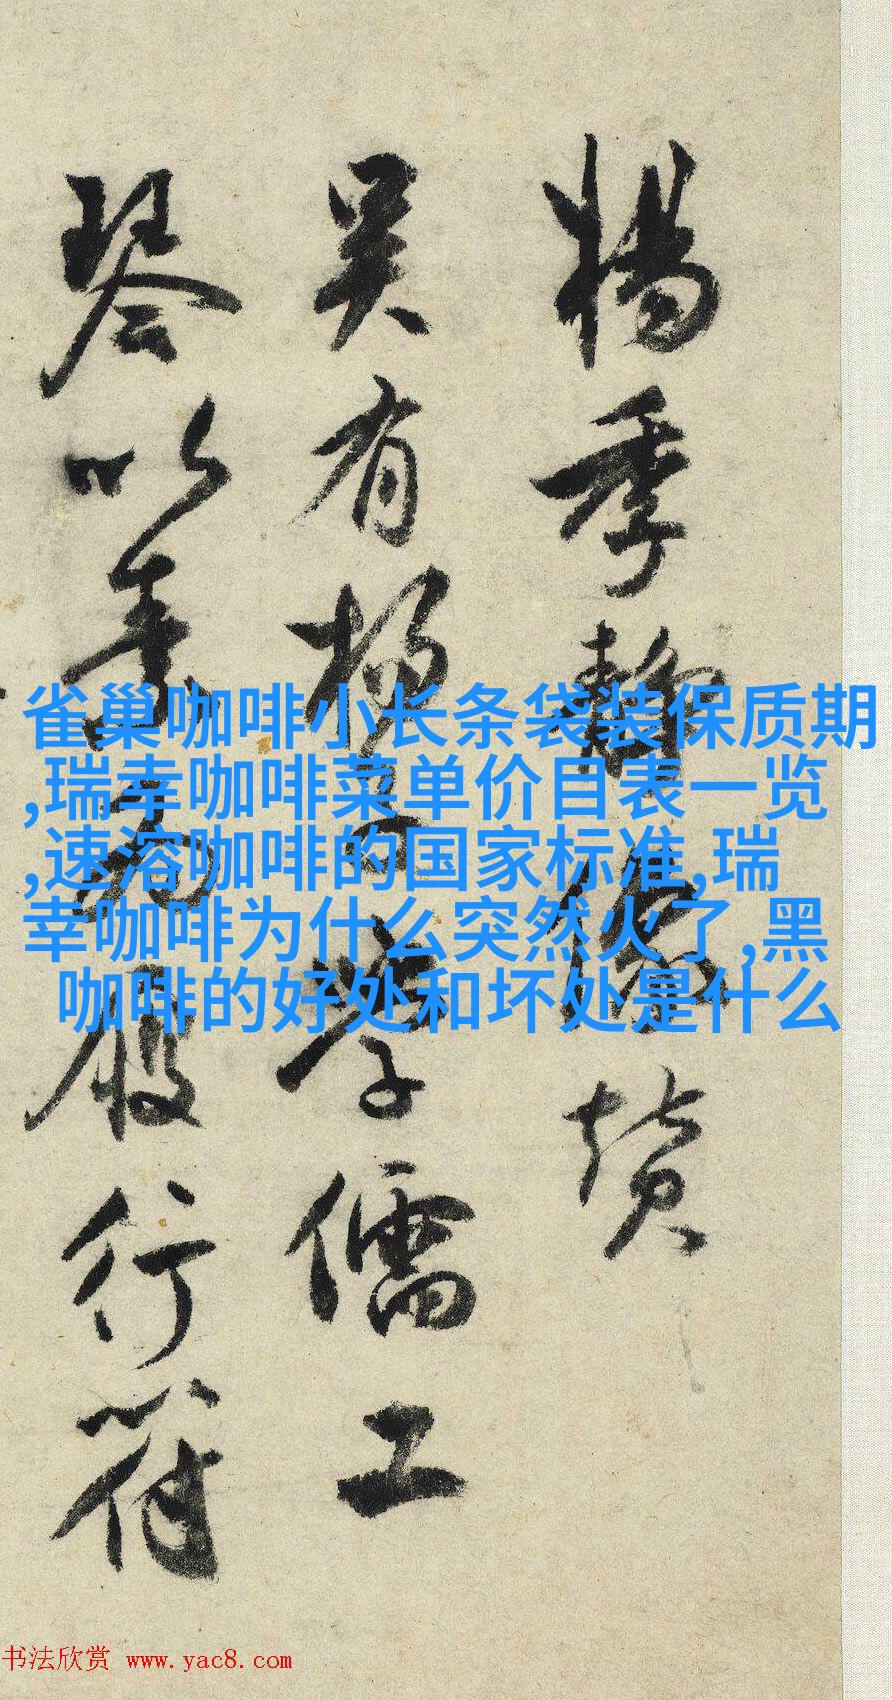 楊季靜像贊
吴有楊季靜學儒工
琴以善為服行符
雀巢咖啡小长条袋装保质期
,瑞幸咖啡菜单价目表一览
,速溶咖啡的国家标准,瑞
幸咖啡为什么突然火了,黑
咖啡的好处和坏处是什么
书法欣赏 www.yac8.com